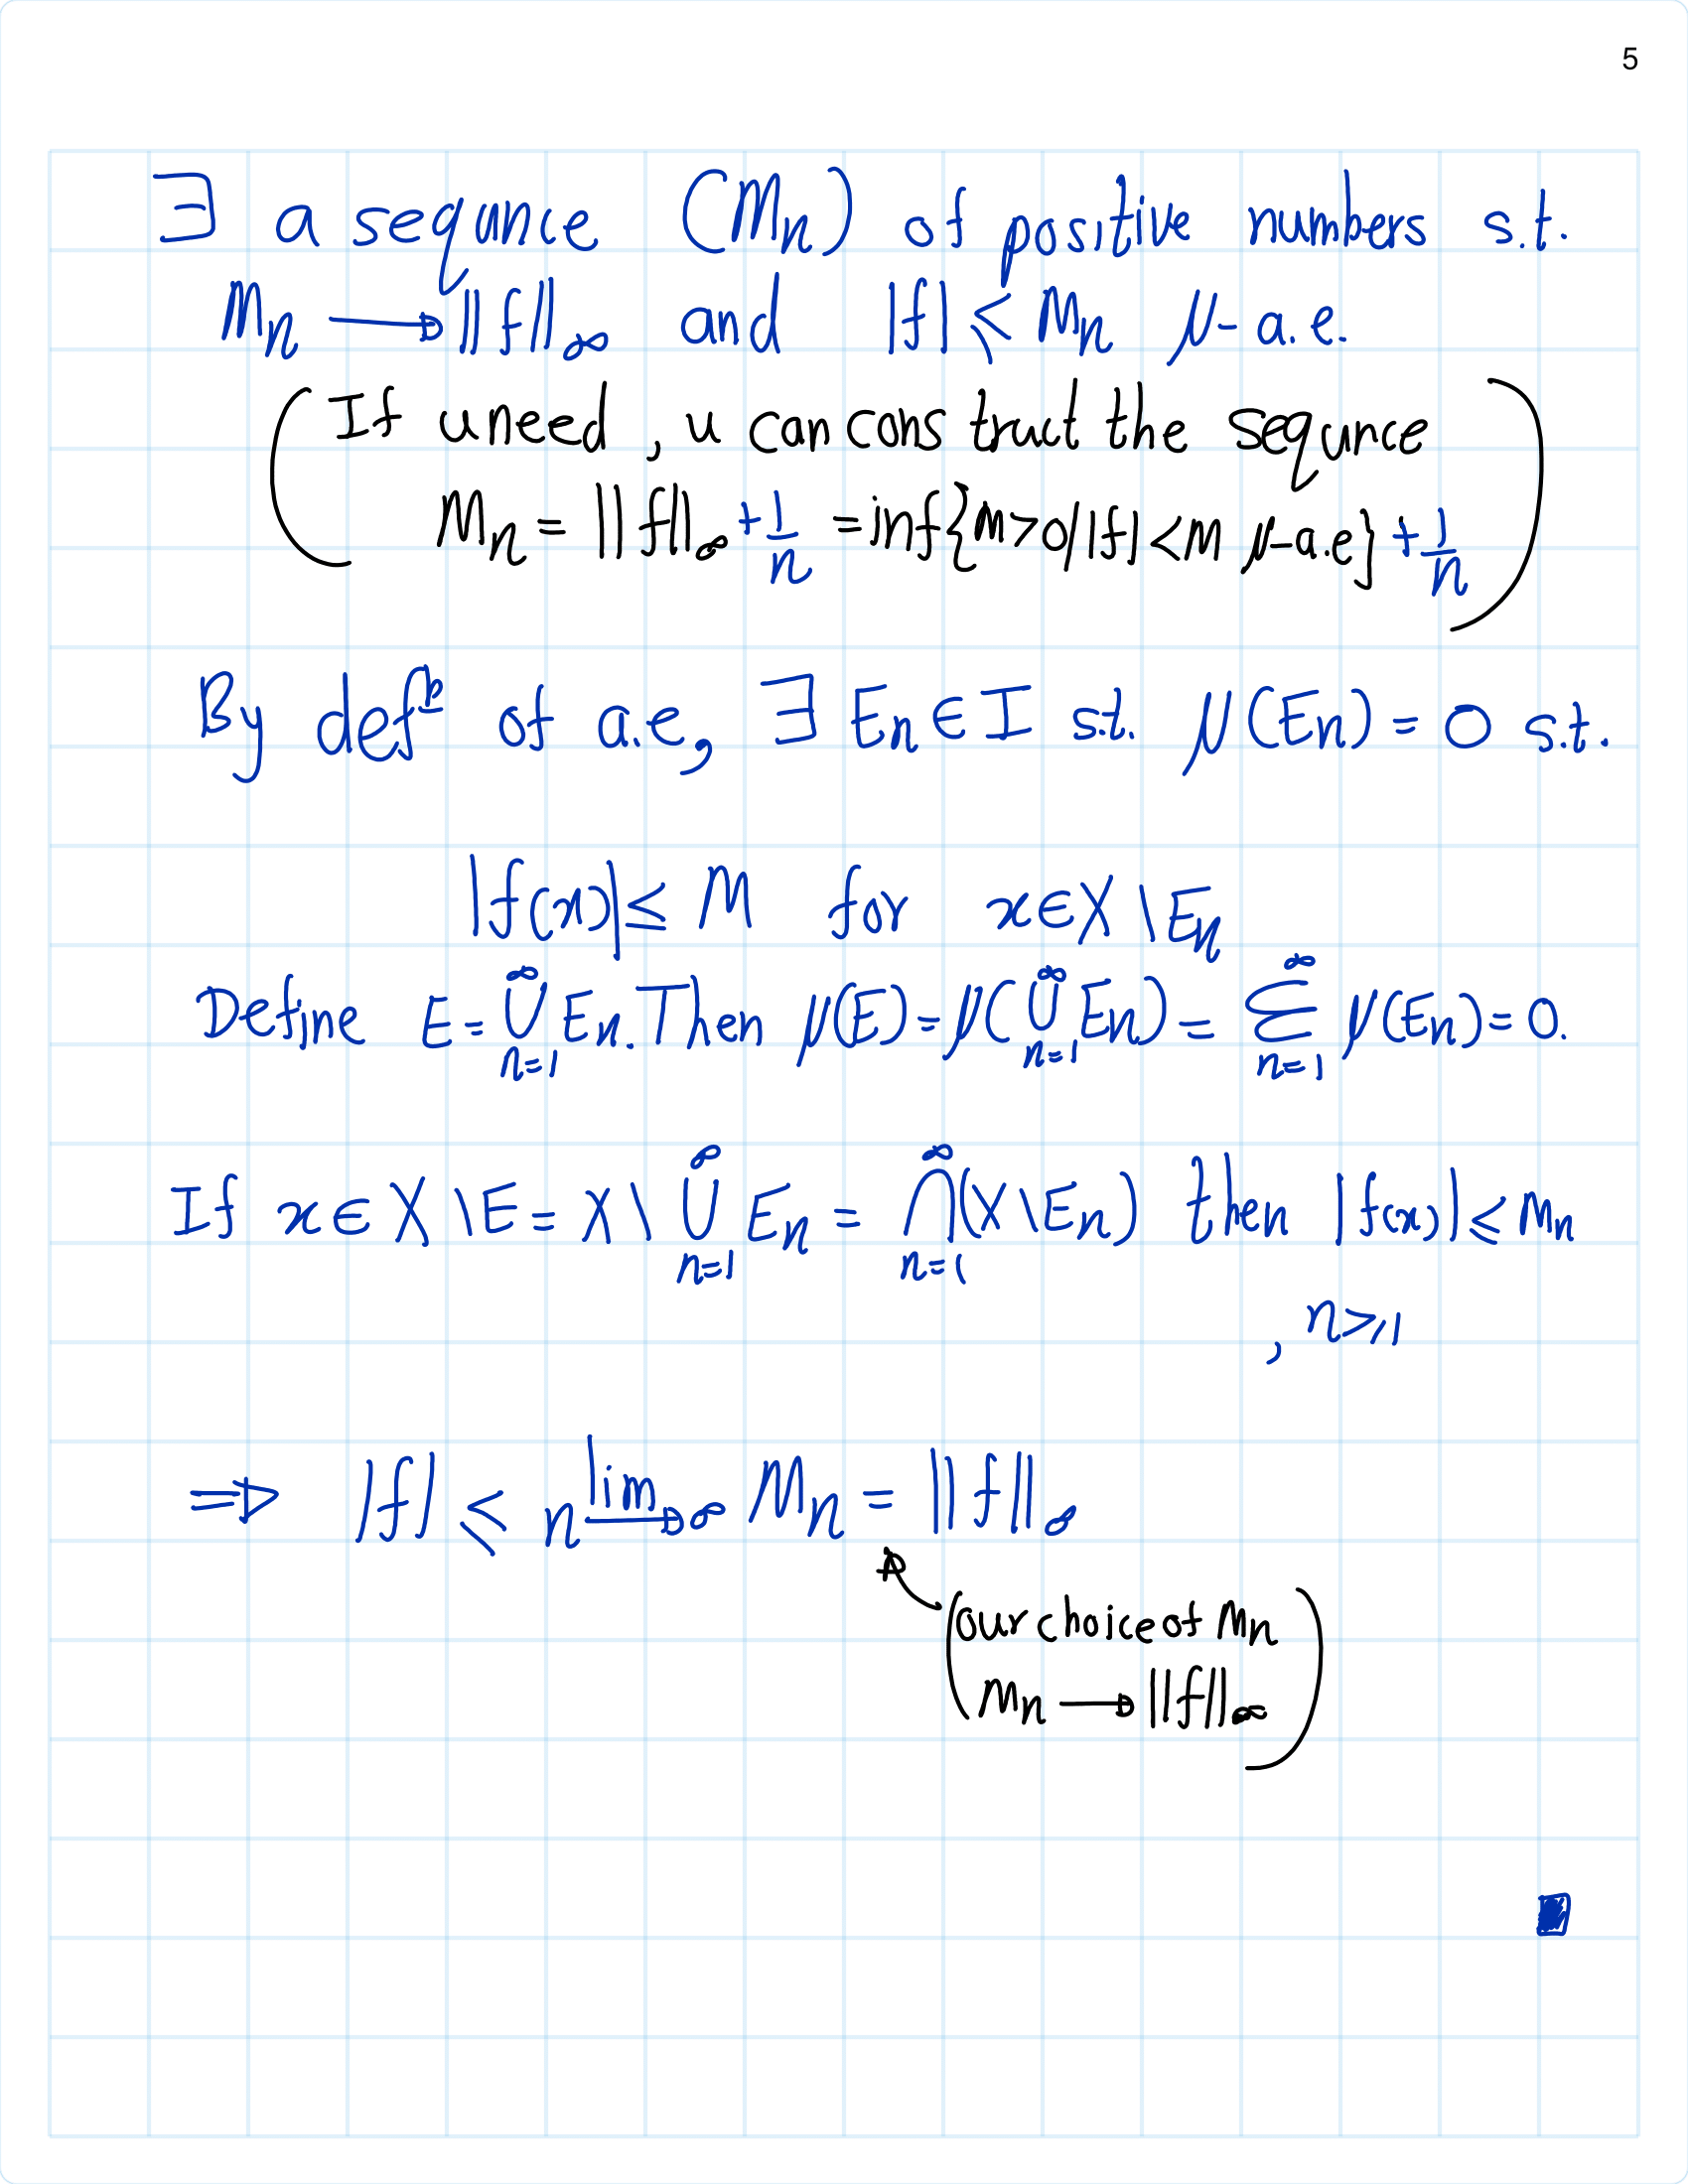 5
∃ a sequnce (Mn) of positive numbers s.t.
Mn → ||f||∞ and |f| ≤ Mn μ-a.e.
(If u need, u can construct the sequnce
Mn = ||f||∞ + 1/n = inf{M>0 | |f|<M μ-a.e} + 1/n)
By defⁿ of a.e, ∃ En ∈ I s.t. μ(En) = 0 s.t.
|f(x)| ≤ M for x∈X\En
Define E = ∞⋃n=1 En. Then μ(E) = μ(∞⋃n=1 En) = ∞∑n=1 μ(En) = 0.
If x∈X\E = X\ ∞⋃n=1 En = ∞⋂n=1 (X\En) then |f(x)| ≤ Mn
, n ≥ 1
⇒ |f| ≤ lim n→∞ Mn = ||f||∞
(our choice of Mn
Mn → ||f||∞)